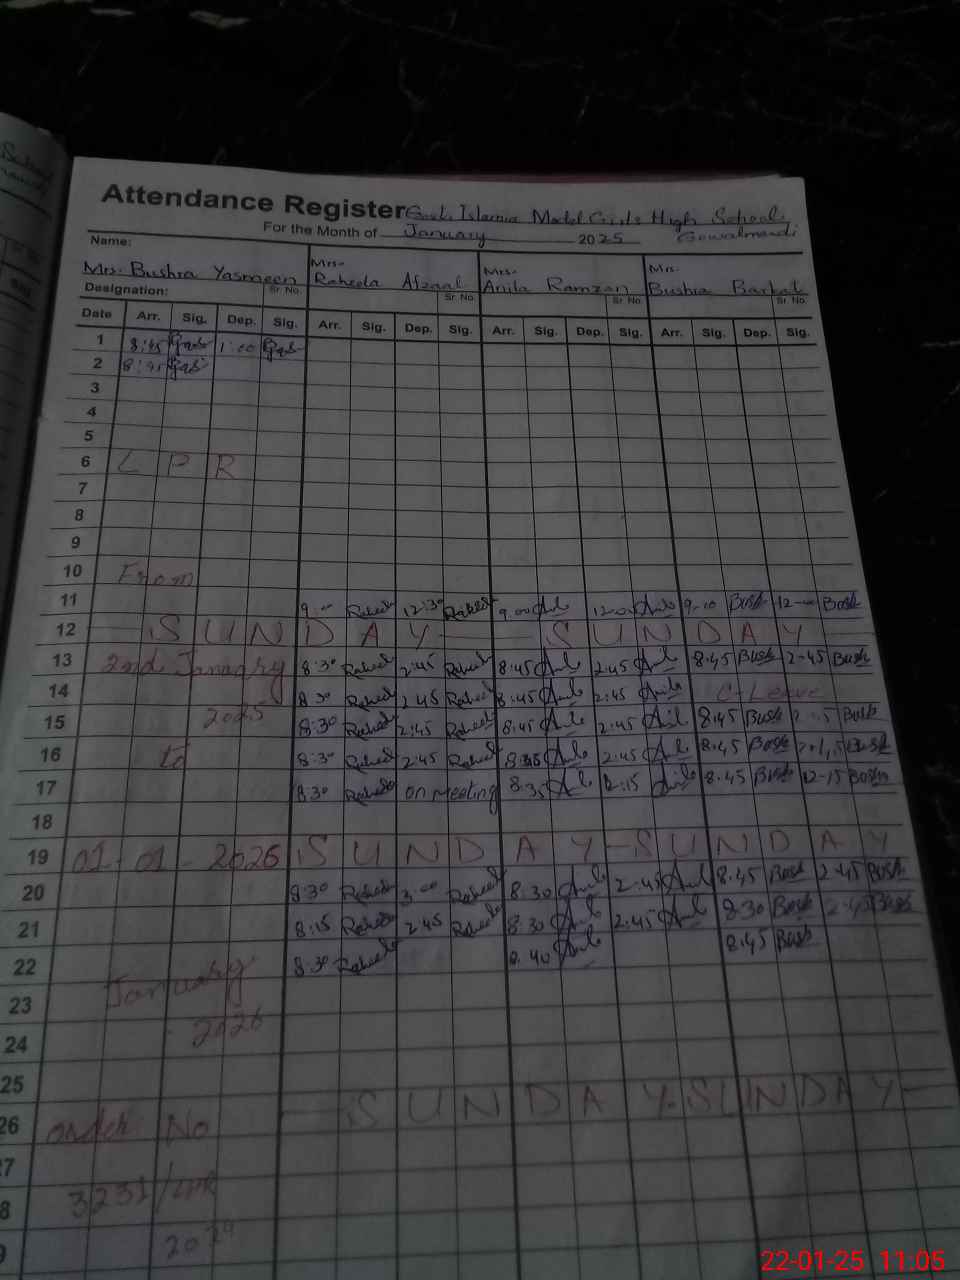 Attendance Register Govt. Islamia Model Girls High School
For the Month of January 2025 Gowalmandi
Name: Mrs. Mrs. Mrs.
Mrs. Bushra Yasmeen Raheela Afzaal Anila Ramzan Bushra Barkat
Designation: Sr No. Sr No. Sr No. Sr No.
Date Arr. Sig. Dep. Sig. Arr. Sig. Dep. Sig. Arr. Sig. Dep. Sig. Arr. Sig. Dep. Sig.
1 8:45 1:00
2 8:45
3
4
5
6 L P R
7
8
9
10 From
11 9:00 Raheel 12:30 Raheel 9.00 Anila 12.00 Anila 9.00 Bush 12-00 Bush
12 S U N D A Y S U N D A Y
13 2nd January 8:30 Raheel 2:45 Raheel 8:45 Anila 2:45 Anila 8.45 Bush 2-45 Bush
14 8:30 Raheel 2:45 Raheel 8:45 Anila 2:45 Anila C-Leave
15 2025 8:30 Raheel 2:45 Raheel 8:45 Anila 2:45 Anila 8.45 Bush Bush
16 to 8:30 Raheel 2:45 Raheel Anila 2:45 Anila 8.45 Bush Bush
17 8:30 Raheel on Meeting 8:35 Anila 12:15 Anila 8.45 Bush 12-15 Bush
18
19 01-01-2026 S U N D A Y - S U N D A Y
20 8:30 Raheel 3:00 Raheel 8.30 Anila 2:45 Anila 8.45 Bush 2.45 Bush
21 8:15 Raheel 2:45 Raheel 8:30 Anila 2:45 Anila 8.30 Bush 2.45 Bush
22 8:30 Raheel 8.40 Anila 8.45 Bush
23 January
24 2026
25
26 order No S U N D A Y S U N D A Y
7
8 3231/LPR
9 2024
22-01-25 11:05